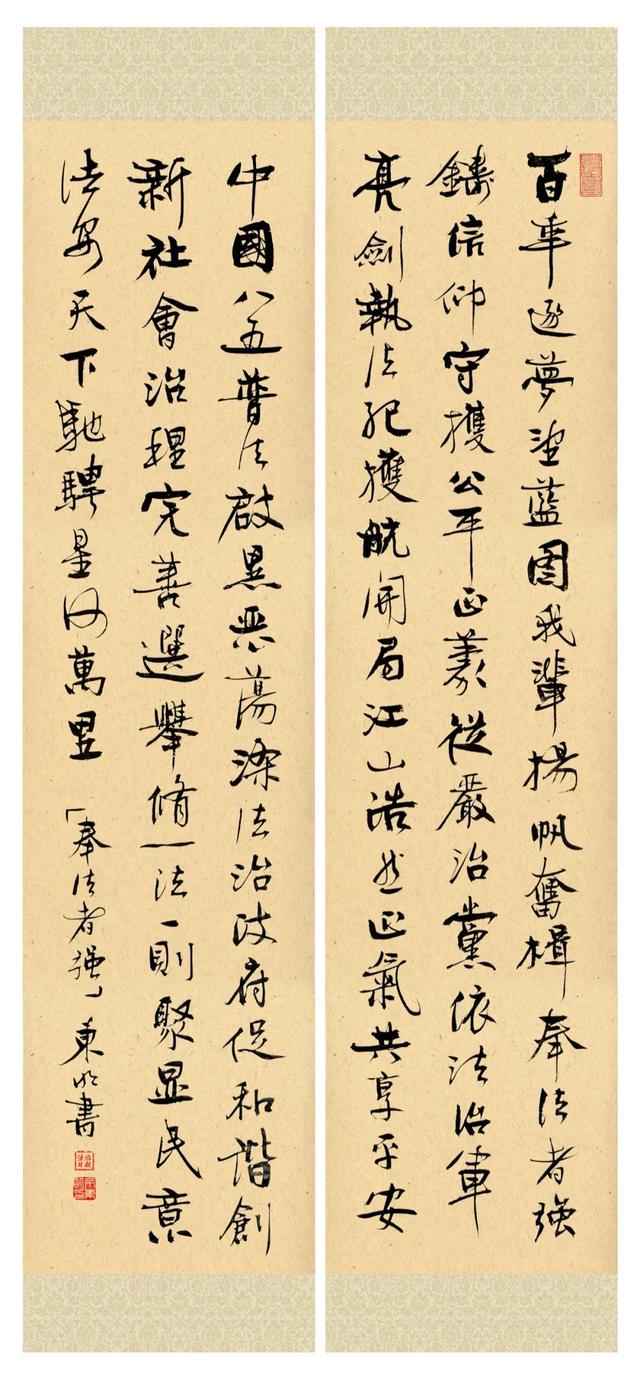 百年逐夢望藍圖我輩揚帆奮楫奉法者强
鑄信仰守護公平正義從嚴治黨依法治軍
亮劍執法紀護航開局江山浩然正氣共享平安
中國八五普法啟黑惡蕩滌法治政府促和諧創
新社會治理完善選舉脩一法一則聚显民意
法安天下馳騁星河萬里「奉法者强」東明書